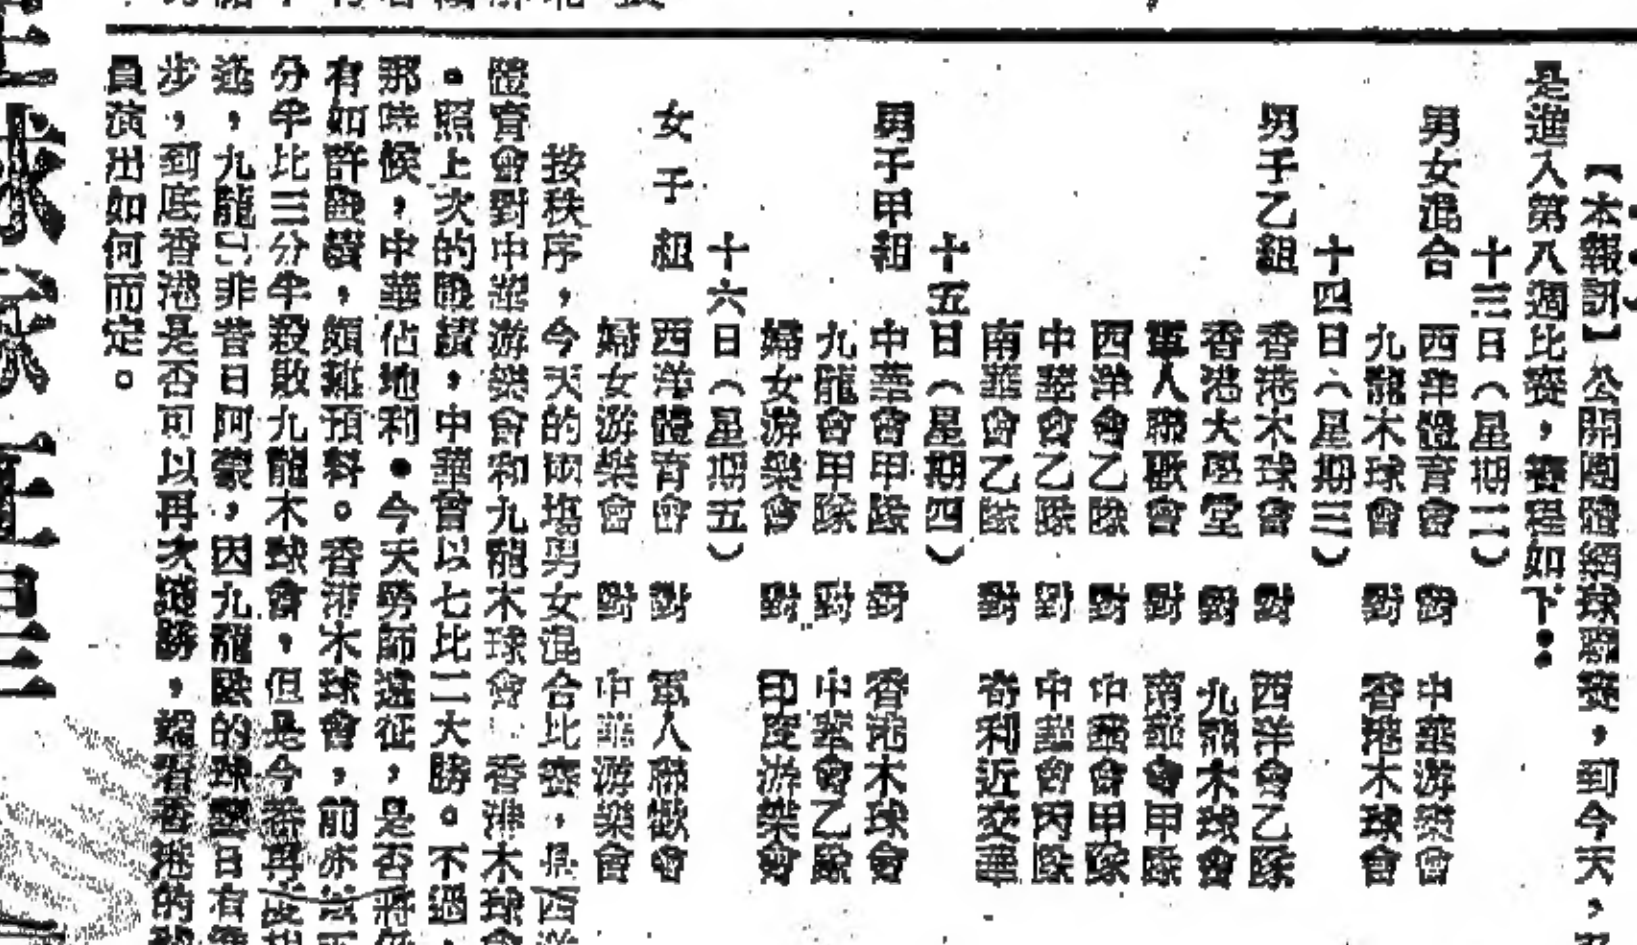 【本報訊】公開團體網球聯賽，到今天，
是進入第八週比賽，賽程如下：
十三日（星期二）
男女混合　西洋體育會　對　中華游樂會
九龍木球會　對　香港木球會
十四日（星期三）
男子乙組　香港木球會　對　西洋會乙隊
香港大學堂　對　九龍木球會
軍人聯歡會　對　南華會甲隊
西洋會乙隊　對　中華會甲隊
中華會乙隊　對　中華會丙隊
南華會乙隊　對　奇利近交華
十五日（星期四）
男子甲組　中華會甲隊　對　香港木球會
九龍會甲隊　對　中華會乙隊
婦女游樂會　對　印度游樂會
十六日（星期五）
女子組　西洋體育會　對　軍人聯歡會
婦女游樂會　對　中華游樂會
按秩序，今天的兩塲男女混合比賽，是西洋
體育會對中華游樂會和九龍木球會　香港木球會
。照上次的戰績，中華會以七比二大勝。不過，
那時候，中華佔地利。今天勞師遠征，是否將
有如許戰績，頗難預料。香港木球會，前亦
分半比三分半殺敗九龍木球會，但是今番再度
，九龍已非昔日阿蒙，因九龍隊的球藝日有進
步，到底香港是否可以再次戰勝，端看香港的
員演出如何而定。